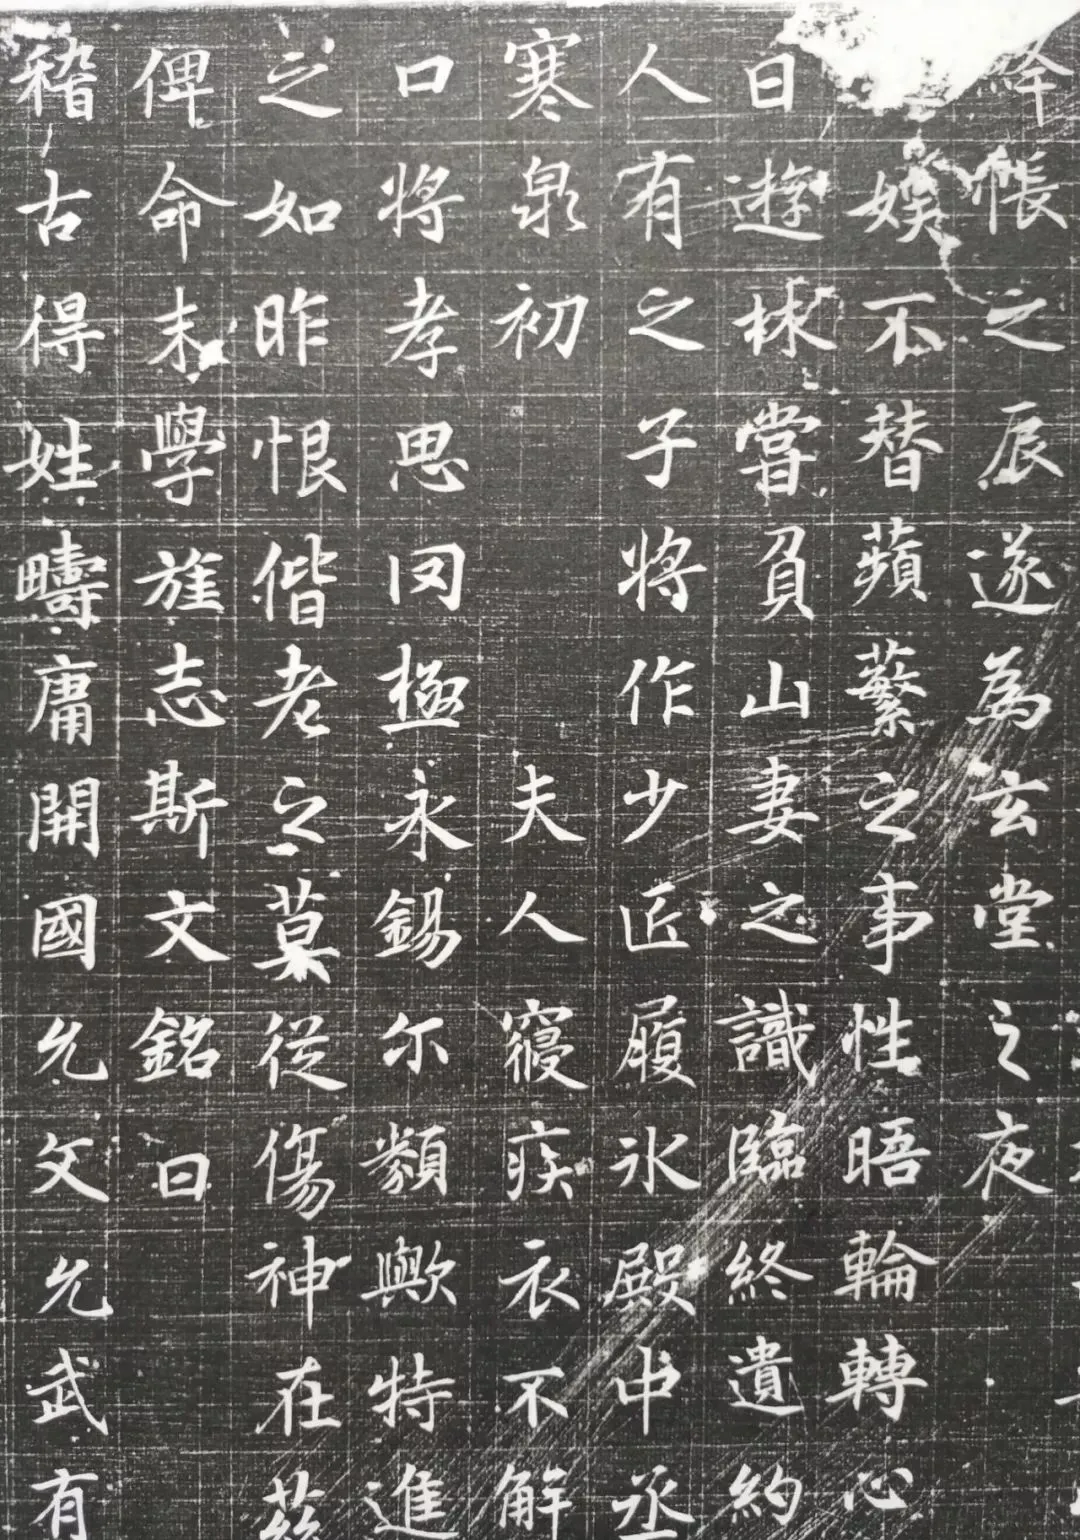 絳帳之辰遂為玄堂之夜
娛不替蘋蘩之事性晤輪轉心
日遊林嘗負山妻之識臨終遺約
人有之子將作少匠履氷殿中丞
寒泉初夫人寢疾衣不解
口將孝思罔極永錫尒類歟特進
之如昨恨偕老之莫從傷神在茲
俾命末學旌志斯文銘曰
稽古得姓疇庸開國允文允武有